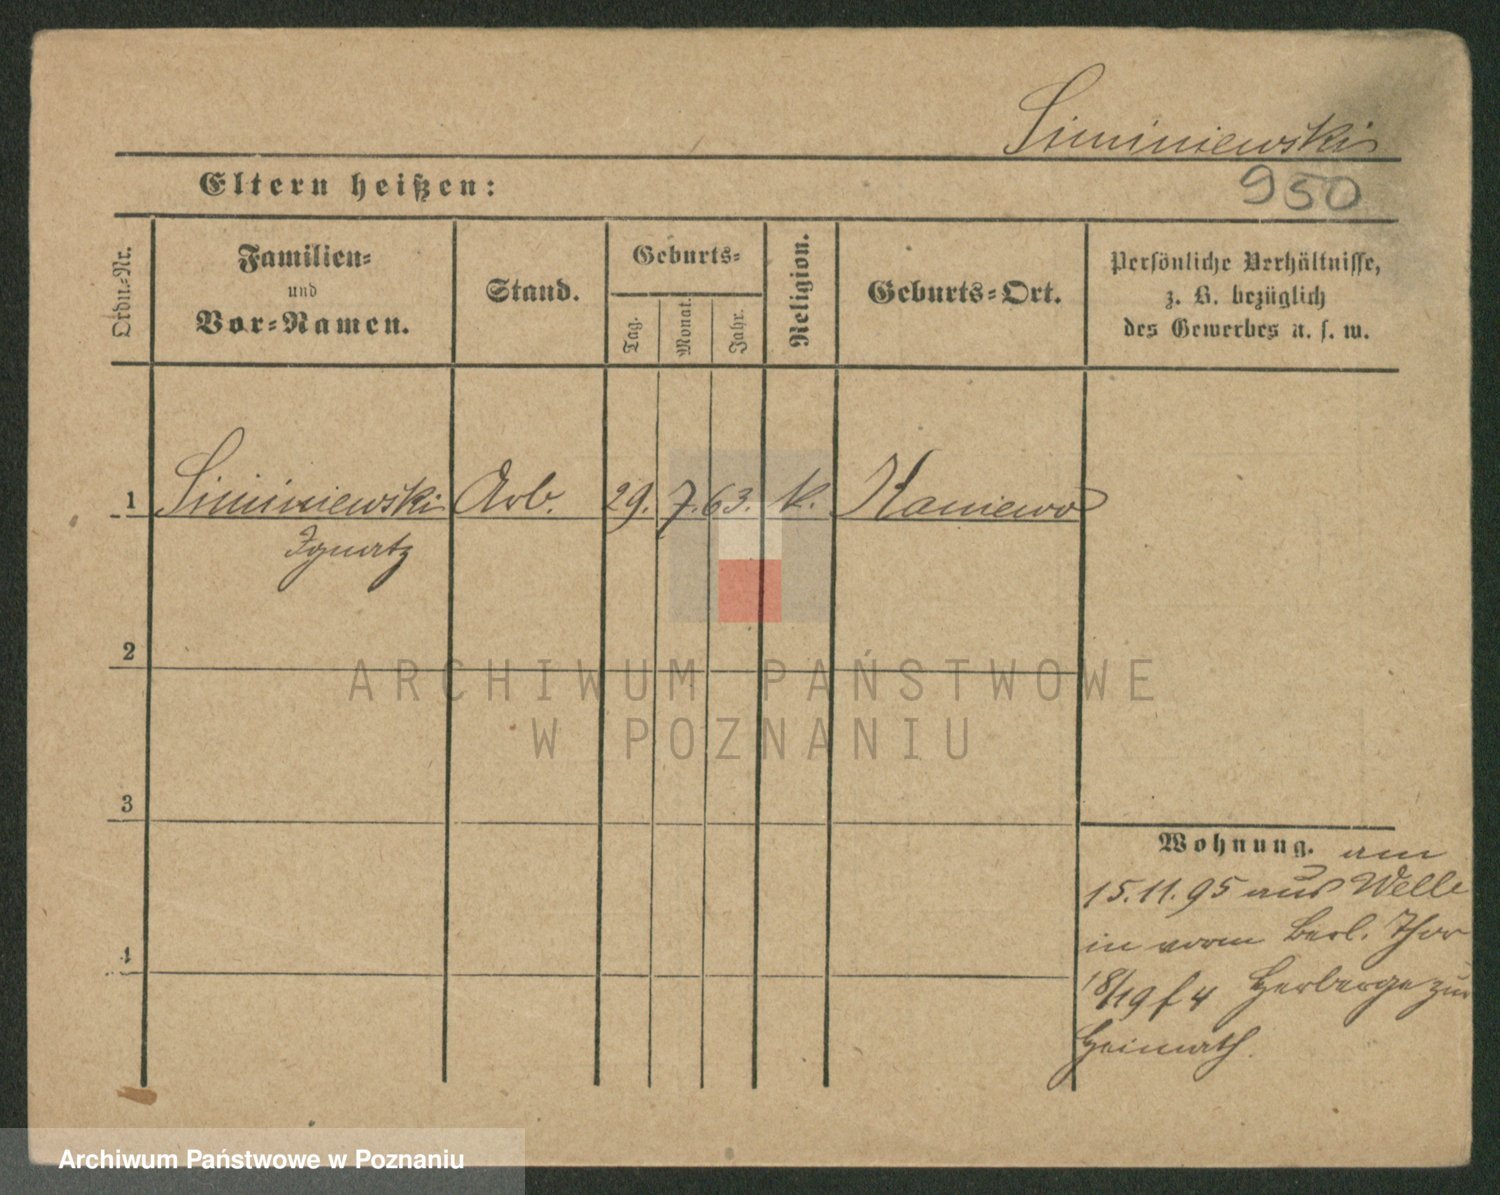 Siminiewski
Eltern heißen:
950
Ordn.-Nr.
Familien-
und
Vor-Namen.
Stand.
Geburts-
Tag.
Monat.
Jahr.
Religion.
Geburts-Ort.
Persönliche Verhältnisse,
z. B. bezüglich
des Gewerbes u. s. w.
1 Siminiewski Arb. 29. 7. 63. k. Kaniewo
Ignatz
2
3
4
Wohnung. am
15.11.95 aus Welle
in vorm Berl. Thor
18/19 f 4 Herberge zur
Heimath.
ARCHIWUM PAŃSTWOWE
W POZNANIU
Archiwum Państwowe w Poznaniu